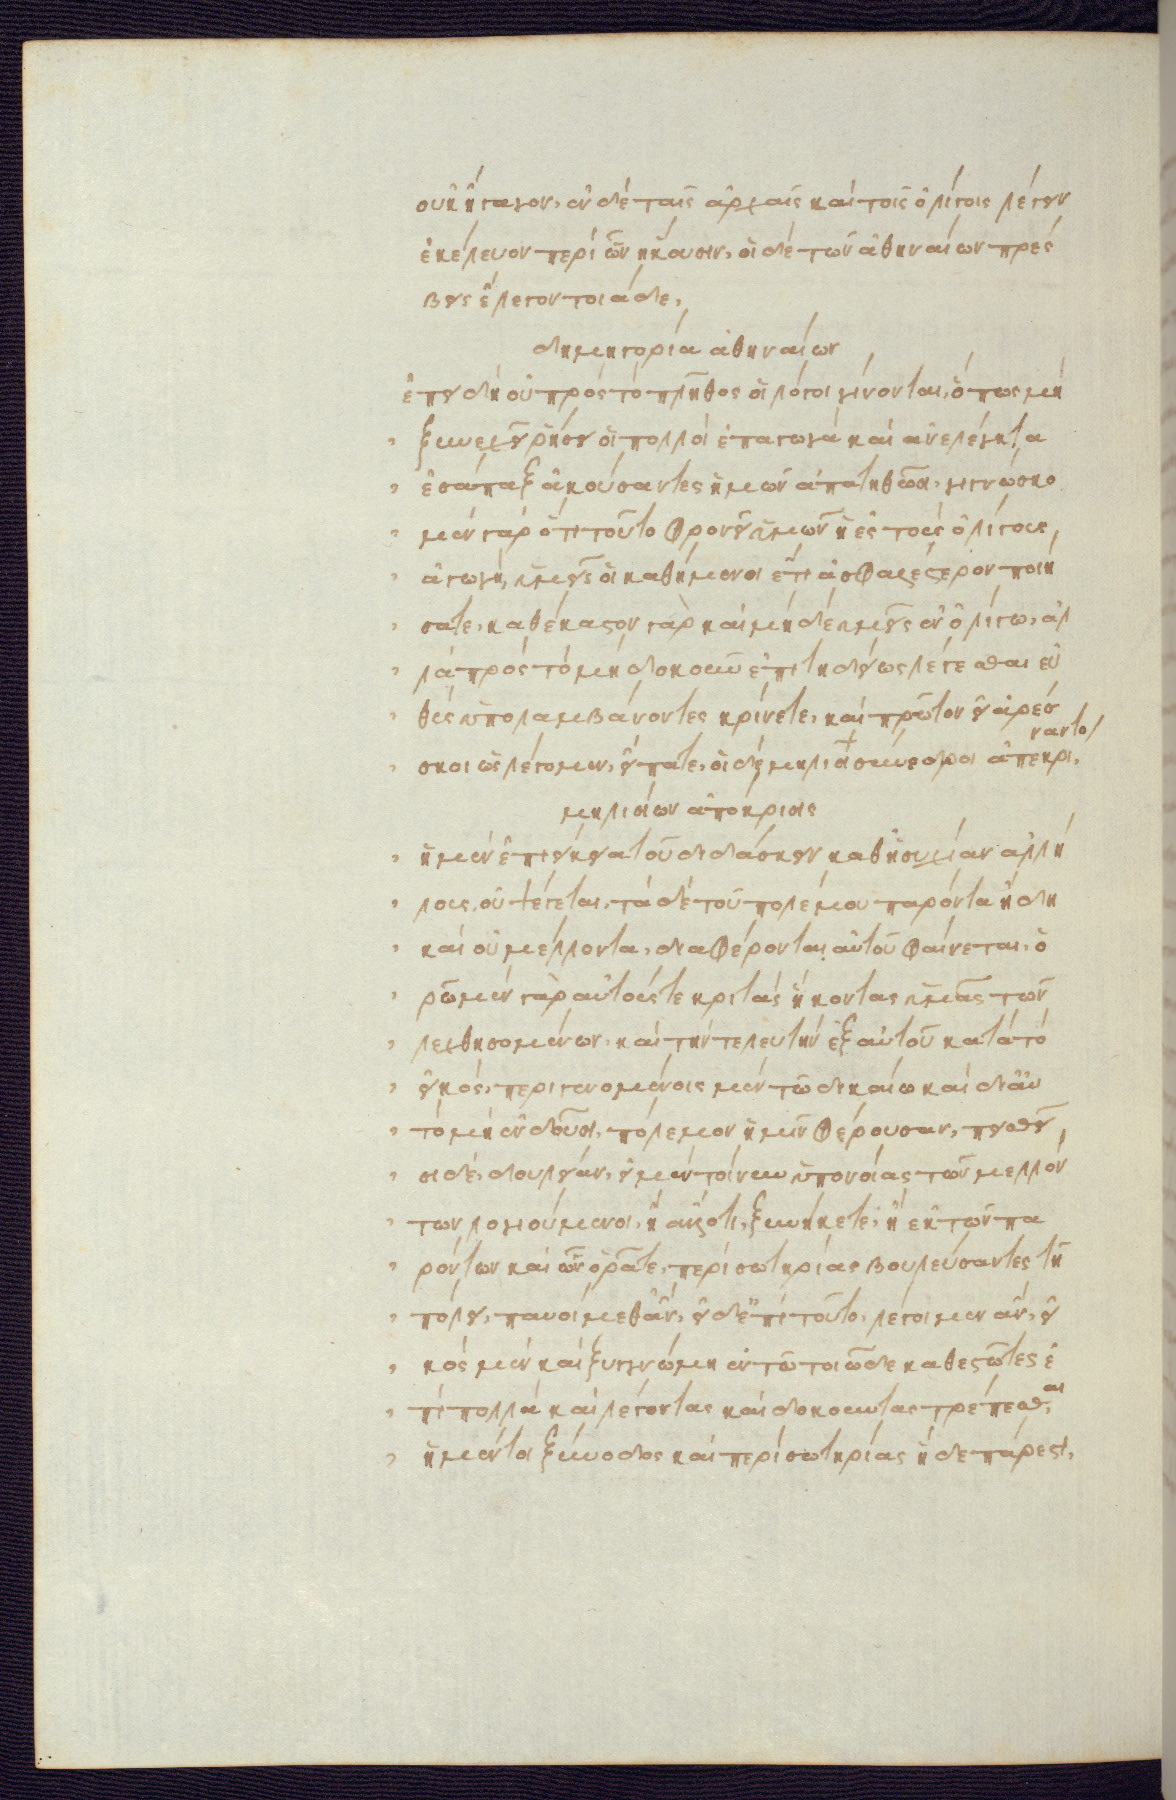 οὐκ ἤγαγον, ἐν δὲ ταῖς ἀρχαῖς καὶ τοῖς ὀλίγοις λέγειν
ἐκέλευον περὶ ὧν ἥκουσιν, οἱ δὲ τῶν ἀθηναίων πρέσ
βεις ἔλεγον τοιάδε,
δημηγορία ἀθηναίων
ἐπειδὴ οὐ πρὸς τὸ πλῆθος οἱ λόγοι γίνονται, ὅπως μὴ
ξυνεχεῖ ῥήσει οἱ πολλοὶ ἐπαγωγὰ καὶ ἀνέλεγκτα
ἐσάπαξ ἀκούσαντες ἡμῶν ἀπατηθῶσι, γιγνώσκο
μεν γὰρ ὅτι τοῦτο φρονεῖ ὑμῶν ἡ ἐς τοὺς ὀλίγους
ἀγωγή, ὑμεῖς οἱ καθήμενοι ἔτι ἀσφαλέστερον ποιή
σατε, καθέκαστον γὰρ καὶ μηδὲ ὑμεῖς ἐν ὀλίγω, ἀλ
λὰ πρὸς τὸ μὴ δοκοῦν ἐπιτηδείως λέγεσθαι εὐ
θὺς ὑπολαμβάνοντες κρίνετε, καὶ πρῶτον εἰ ἀρέσ
σκει ὡς λέγομεν, εἴπατε, οἱ δὲ μηλίων ξύνεδροι ἀπεκρί
ναντο
μηλιαίων ἀπόκρισις
ἡ μὲν ἐπιείκεια τοῦ διδάσκειν καθ' ἡσυχίαν ἀλλή
λους, οὐ ψέγεται, τὰ δὲ τοῦ πολέμου παρόντα ἤδη
καὶ οὐ μέλλοντα, διαφέρονται αὐτοῦ φαίνεται, ὁ
ρῶμεν γὰρ αὐτούς τε κριτὰς ἥκοντας ὑμᾶς τῶν
λεχθησομένων, καὶ τὴν τελευτὴν ἐξ αὐτοῦ κατὰ τὸ
εἰκὸς, περιγενομένοις μὲν τῶ δικαίω καὶ δι' αὐ
τὸ μὴ ἐνδοῦσι, πόλεμον ἡμῖν φέρουσαν, πεισθεῖ
σι δὲ, δουλείαν, εἰ μὲν τοίνυν ὑπονοίας τῶν μελλόν
των λογιούμενοι, ἢ ἄλλο τι, ξυνήκετε, ἢ ἐκ τῶν πα
ρόντων καὶ ὧν ὁρᾶτε, περὶ σωτηρίας βουλεύσαντες τῆ
πόλει, παυοίμεθ' ἂν, εἰ δ' ἐπὶ τοῦτο, λέγοιμεν ἂν, εἰ
κὸς μὲν καὶ ξυγγνώμη ἐν τῶ τοιῶδε καθεστῶτες ἐ
πὶ πολλὰ καὶ λέγοντας καὶ δοκοῦντας τρέπεσθαι
ἡ μέντοι ξύνοδος καὶ περὶ σωτηρίας ἥδε πάρεστι,